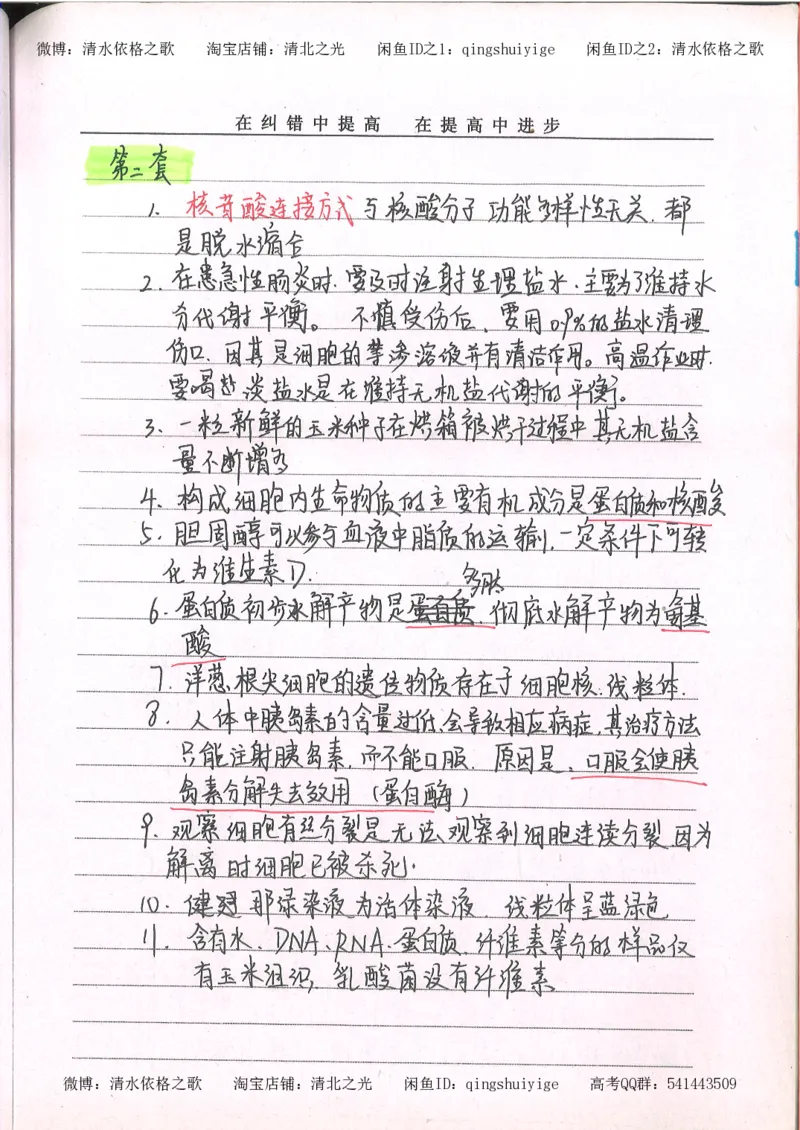 微博：清水依格之歌 淘宝店铺：清北之光 闲鱼ID之1：qingshuiyige 闲鱼ID之2：清水依格之歌
在纠错中提高 在提高中进步
第二套
1. 核苷酸连接方式与核酸分子功能多样性无关，都
是脱水缩合
2. 在患急性肠炎时，要及时注射生理盐水，主要为了维持水
分代谢平衡。不慎受伤后，要用0.9%的盐水清理
伤口，因其是细胞的等渗溶液并有清洁作用。高温作业时
要喝些淡盐水是在维持无机盐代谢的平衡。
3. 一粒新鲜的玉米种子在烘箱被烘干过程中其无机盐含
量不断增多
4. 构成细胞内生命物质的主要有机成分是蛋白质和核酸
5. 胆固醇可以参与血液中脂质的运输，一定条件下可转
化为维生素D.
多肽
6. 蛋白质初步水解产物是蛋白质，彻底水解产物为氨基
酸
7. 洋葱根尖细胞的遗传物质存在于细胞核、线粒体.
8. 人体中胰岛素的含量过低，会导致相应病症，其治疗方法
只能注射胰岛素，而不能口服. 原因是，口服会使胰
岛素分解失去效用（蛋白酶）
9. 观察细胞有丝分裂是无法观察到细胞连续分裂，因为
解离时细胞已被杀死.
10. 健那绿染液为活体染液，线粒体呈蓝绿色
11. 含有水、DNA、RNA、蛋白质、纤维素等分的样品仅
有玉米组织，乳酸菌没有纤维素
微博：清水依格之歌 淘宝店铺：清北之光 闲鱼ID：qingshuiyige 高考QQ群：541443509